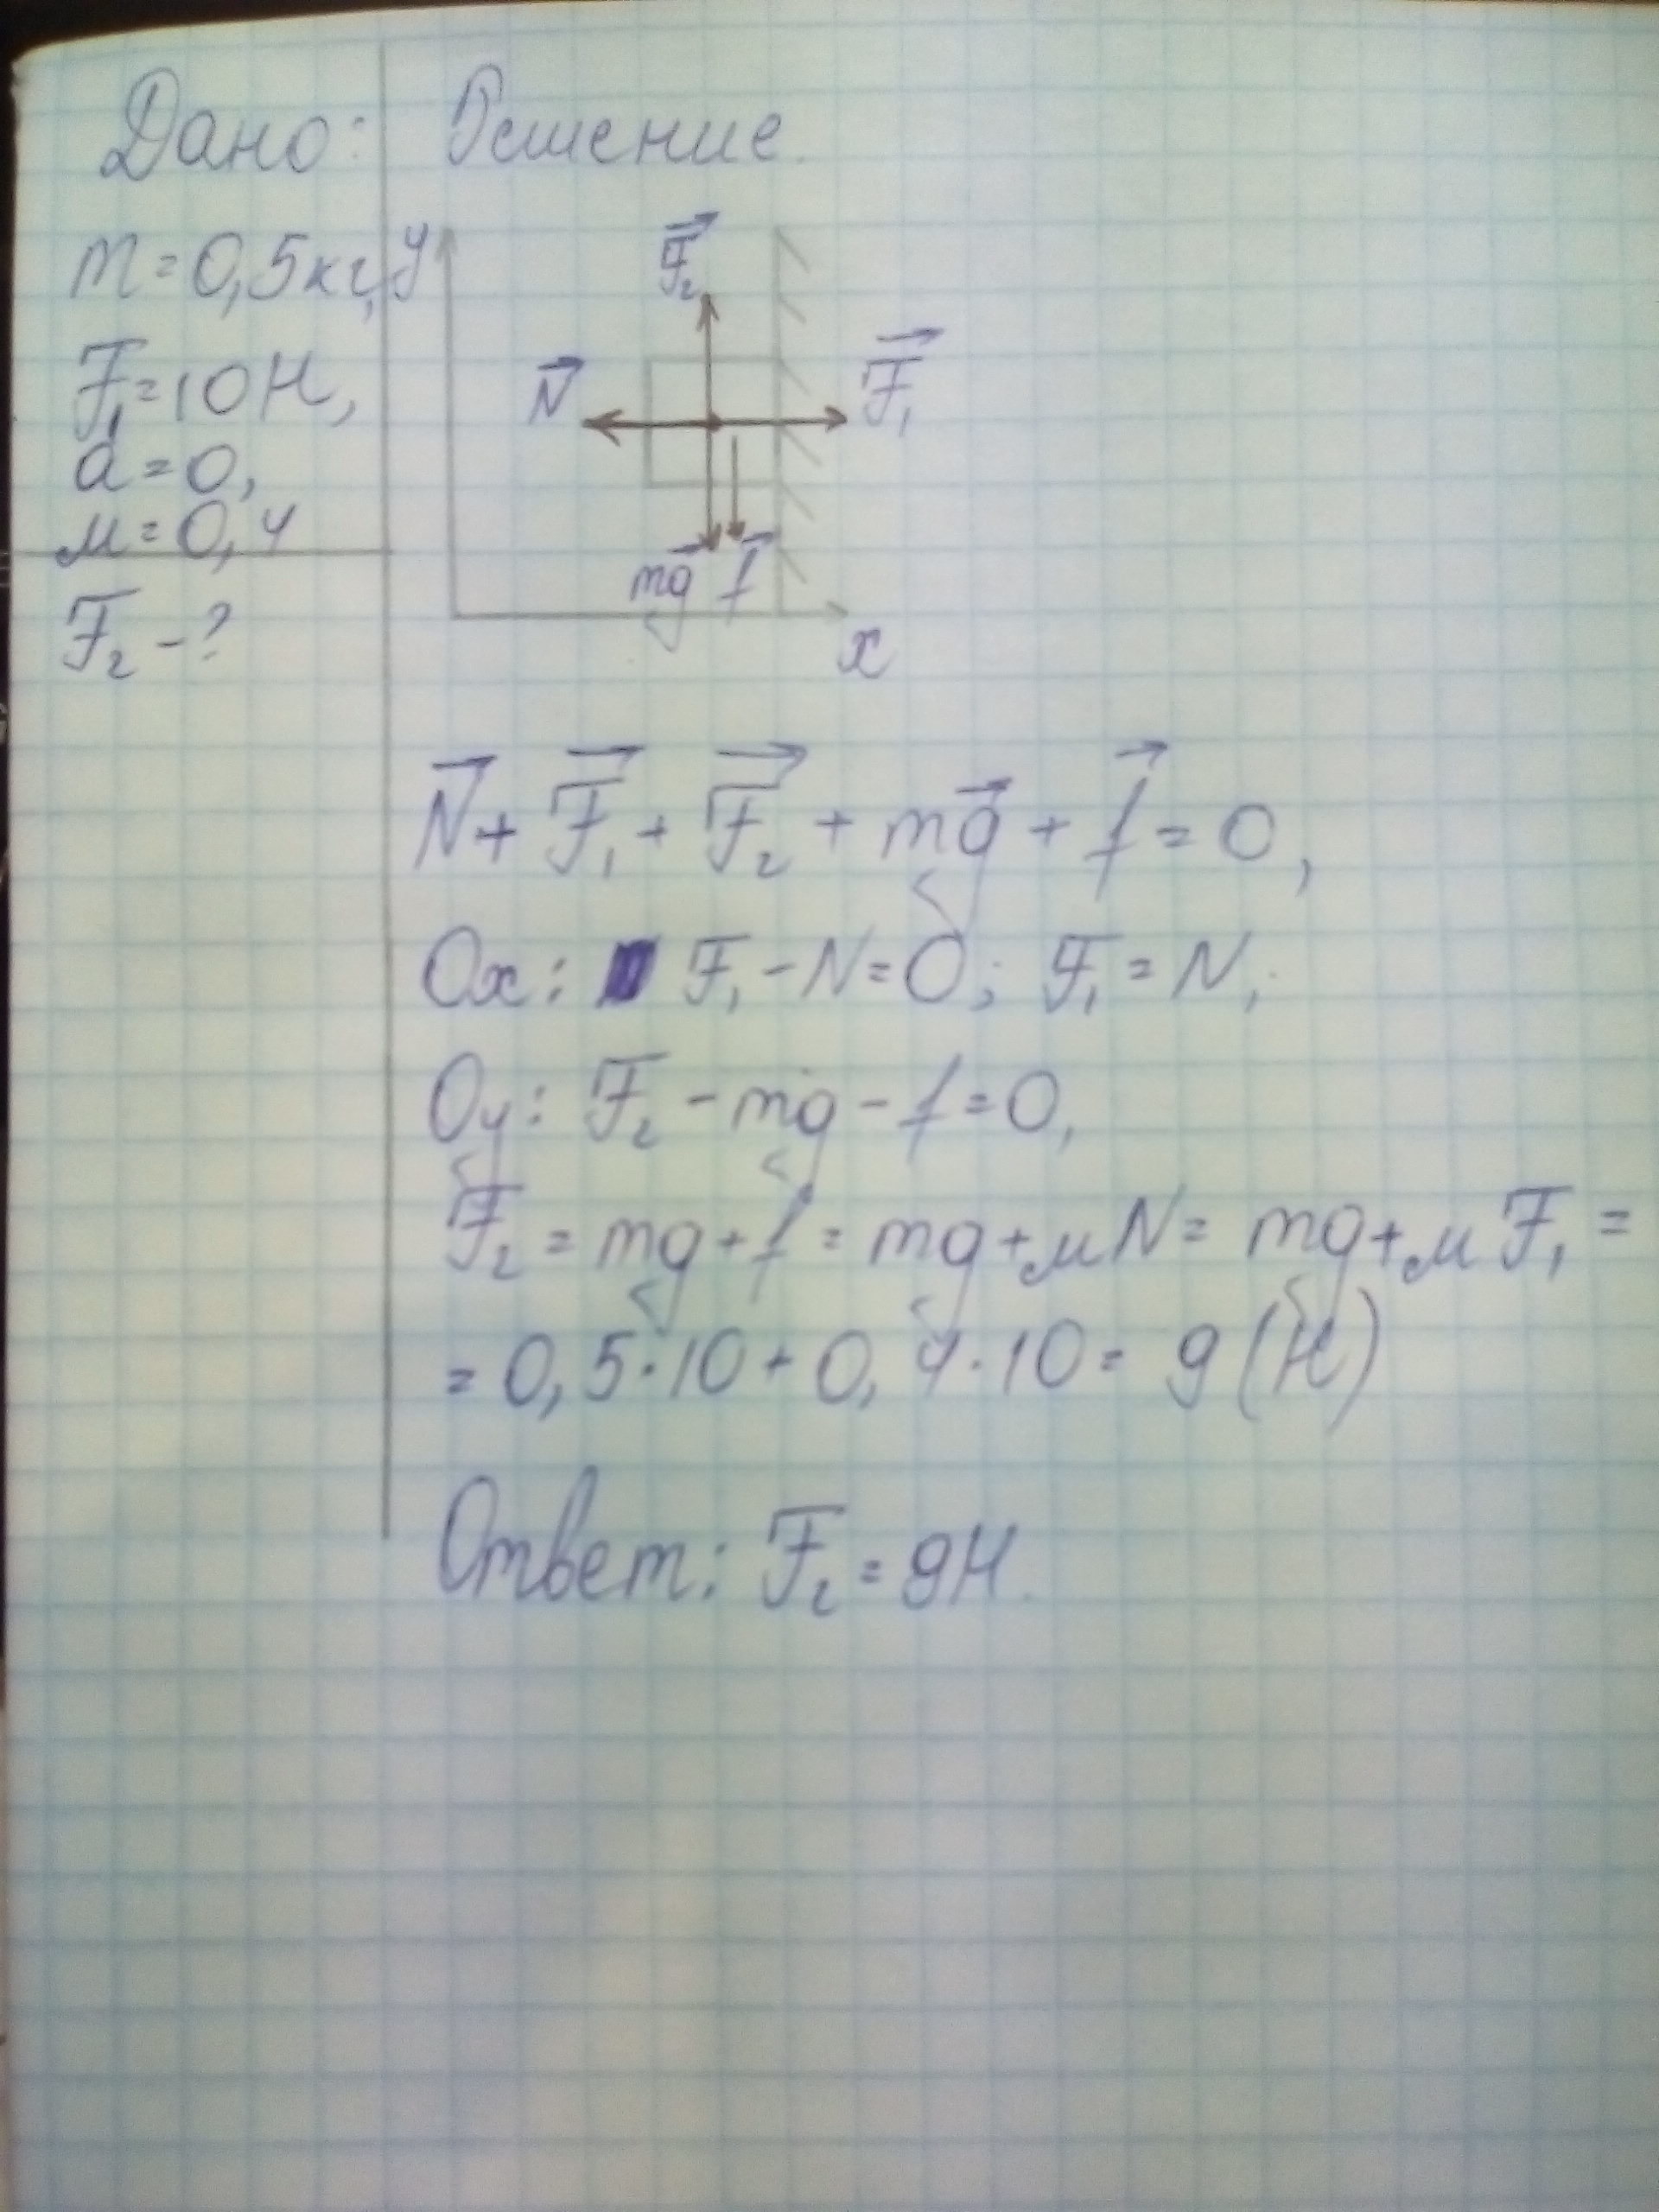 Дано:
m=0,5кг,
F₁=10Н,
a=0,
μ=0,4
F₂-?
Решение.
y
F⃗₂
N⃗
F⃗₁
mg⃗ f⃗
x
N⃗+F⃗₁+F⃗₂+mg⃗+f⃗=0,
Ox: F₁-N=0; F₁=N,
Oy: F₂-mg-f=0,
F₂=mg+f=mg+μN=mg+μF₁=
=0,5·10+0,4·10=9(Н)
Ответ: F₂=9Н.